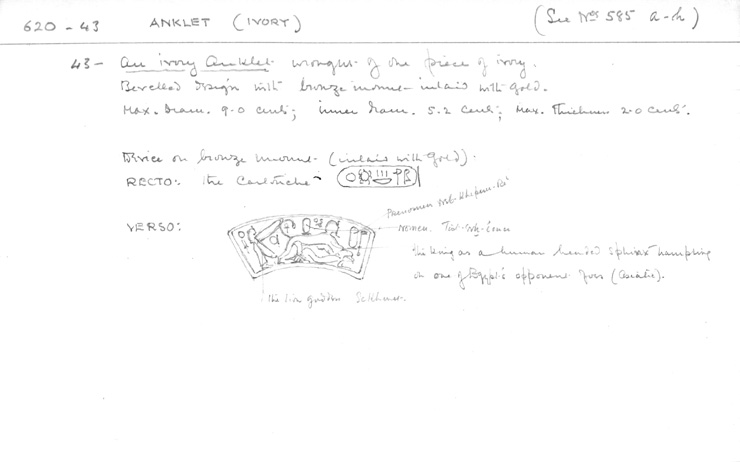 620 - 43 ANKLET (IVORY) (See Nos 585 a-h)
43 - An ivory Anklet wrought of one piece of ivory.
Bevelled design with bronze mount inlaid with gold.
Max. diam. 9.0 cents; inner diam. 5.2 cents; Max. Thickness 2.0 cents.
Device on bronze mount (inlaid with gold).
RECTO: the Cartouche
Prenomen Neb-Kheperu-Re
VERSO:
nomen. Tut-ankh-Amen
the king as a human headed sphinx trampling
on one of Egypt's opponent foes (Asiatic).
the lion goddess Sekhmet.